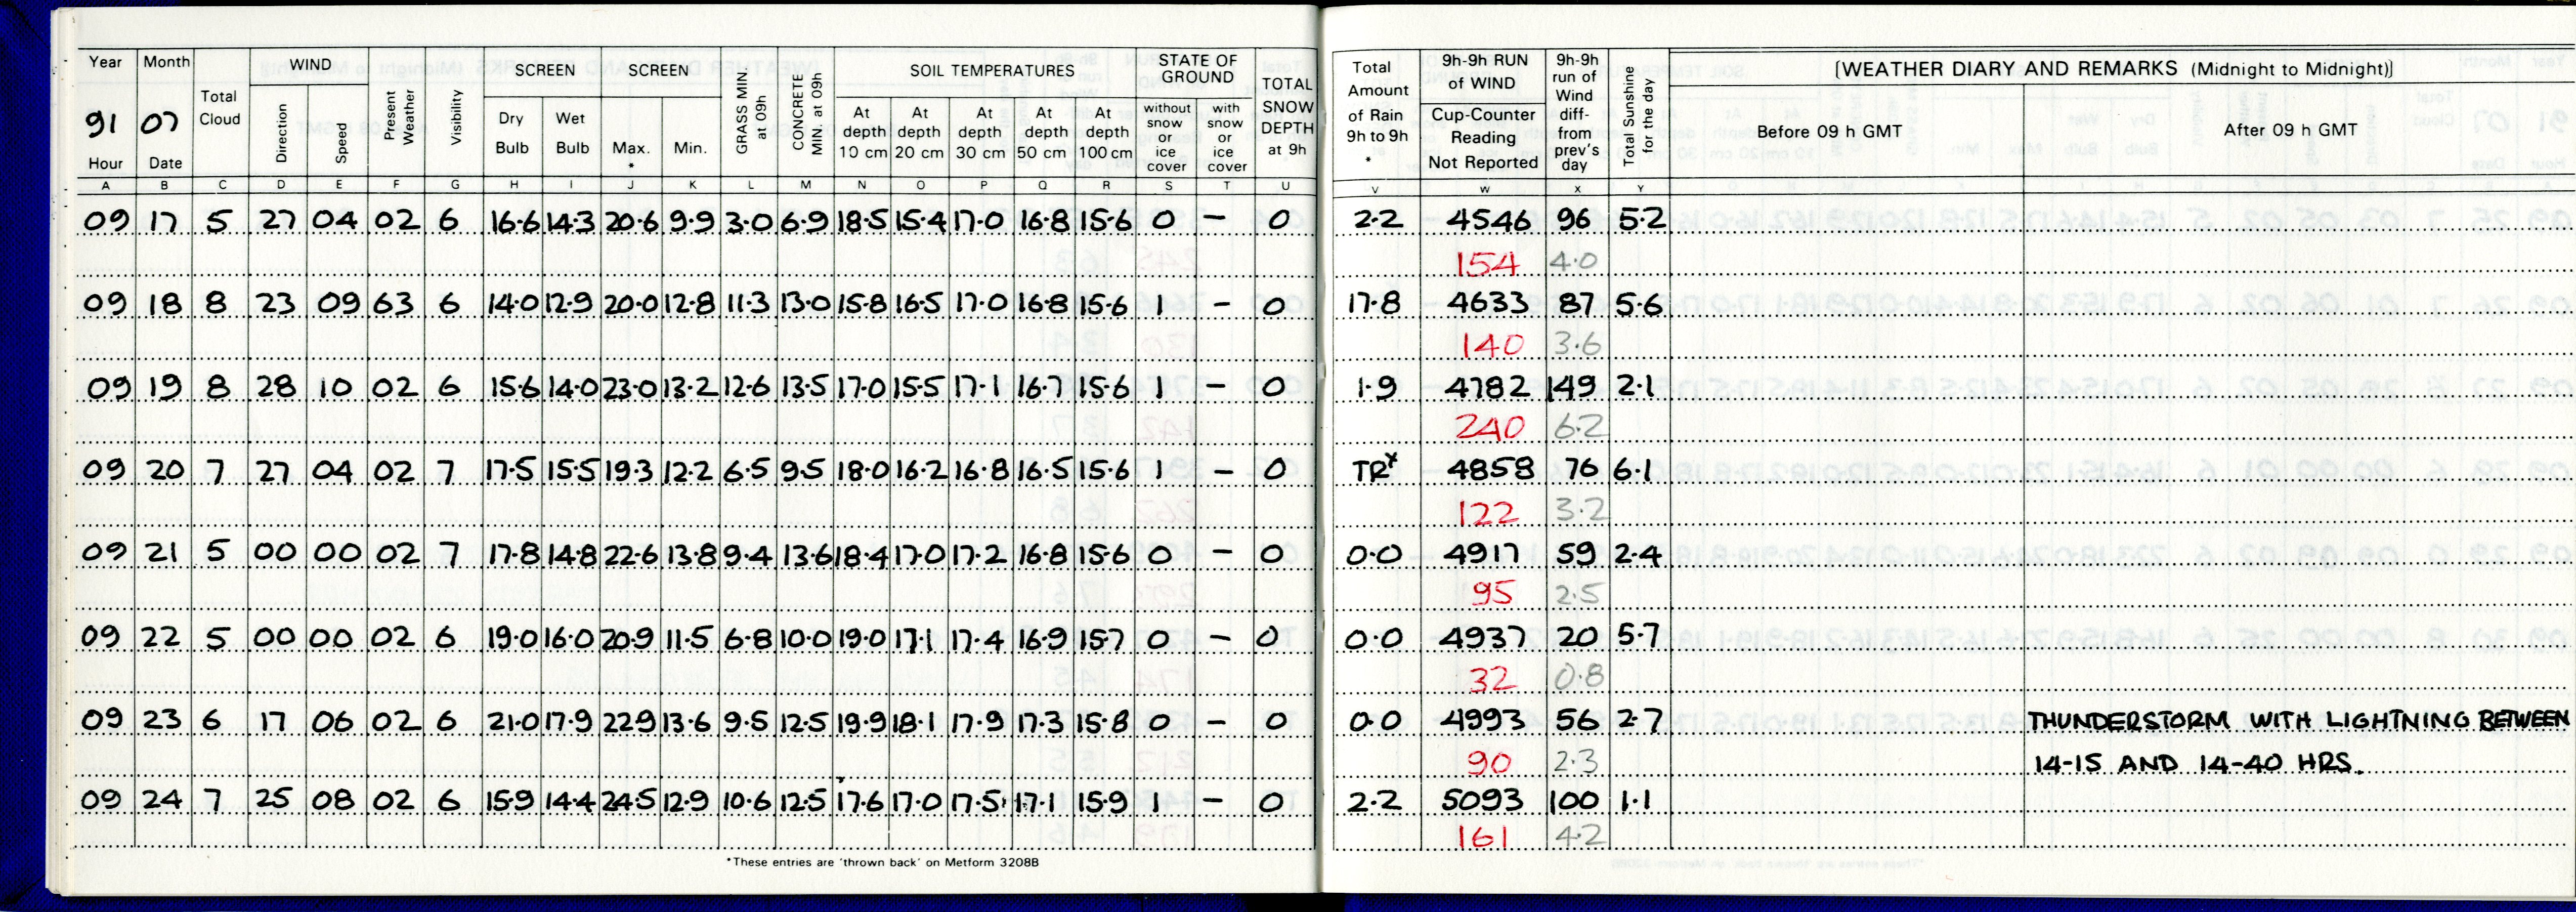 Year Month Total Cloud WIND Present Weather Visibility SCREEN SCREEN GRASS MIN at 09h CONCRETE MIN. at 09h SOIL TEMPERATURES STATE OF GROUND TOTAL SNOW DEPTH at 9h Total Amount of Rain 9h to 9h * 9h-9h RUN of WIND 9h-9h run of Wind diff- from prev's day Total Sunshine for the day [WEATHER DIARY AND REMARKS (Midnight to Midnight)]
91 07 Direction Speed Dry Bulb Wet Bulb Max. * Min. At depth 10 cm At depth 20 cm At depth 30 cm At depth 50 cm At depth 100 cm without snow or ice cover with snow or ice cover Cup-Counter Reading Not Reported Before 09 h GMT After 09 h GMT
Hour Date
A B C D E F G H I J K L M N O P Q R S T U V W X Y
09 17 5 27 04 02 6 16.6 14.3 20.6 9.9 3.0 6.9 18.5 15.4 17.0 16.8 15.6 0 – 0 2.2 4546 96 5.2
154 4.0
09 18 8 23 09 63 6 14.0 12.9 20.0 12.8 11.3 13.0 15.8 16.5 17.0 16.8 15.6 1 – 0 17.8 4633 87 5.6
140 3.6
09 19 8 28 10 02 6 15.6 14.0 23.0 13.2 12.6 13.5 17.0 15.5 17.1 16.7 15.6 1 – 0 1.9 4782 149 2.1
240 6.2
09 20 7 27 04 02 7 17.5 15.5 19.3 12.2 6.5 9.5 18.0 16.2 16.8 16.5 15.6 1 – 0 TR* 4858 76 6.1
122 3.2
09 21 5 00 00 02 7 17.8 14.8 22.6 13.8 9.4 13.6 18.4 17.0 17.2 16.8 15.6 0 – 0 0.0 4917 59 2.4
95 2.5
09 22 5 00 00 02 6 19.0 16.0 20.9 11.5 6.8 10.0 19.0 17.1 17.4 16.9 15.7 0 – 0 0.0 4937 20 5.7
32 0.8
09 23 6 17 06 02 6 21.0 17.9 22.9 13.6 9.5 12.5 19.9 18.1 17.9 17.3 15.8 0 – 0 0.0 4993 56 2.7 THUNDERSTORM WITH LIGHTNING BETWEEN
90 2.3 14-15 AND 14-40 HRS.
09 24 7 25 08 02 6 15.9 14.4 24.5 12.9 10.6 12.5 17.6 17.0 17.5 17.1 15.9 1 – 0 2.2 5093 100 1.1
161 4.2
*These entries are 'thrown back' on Metform 3208B